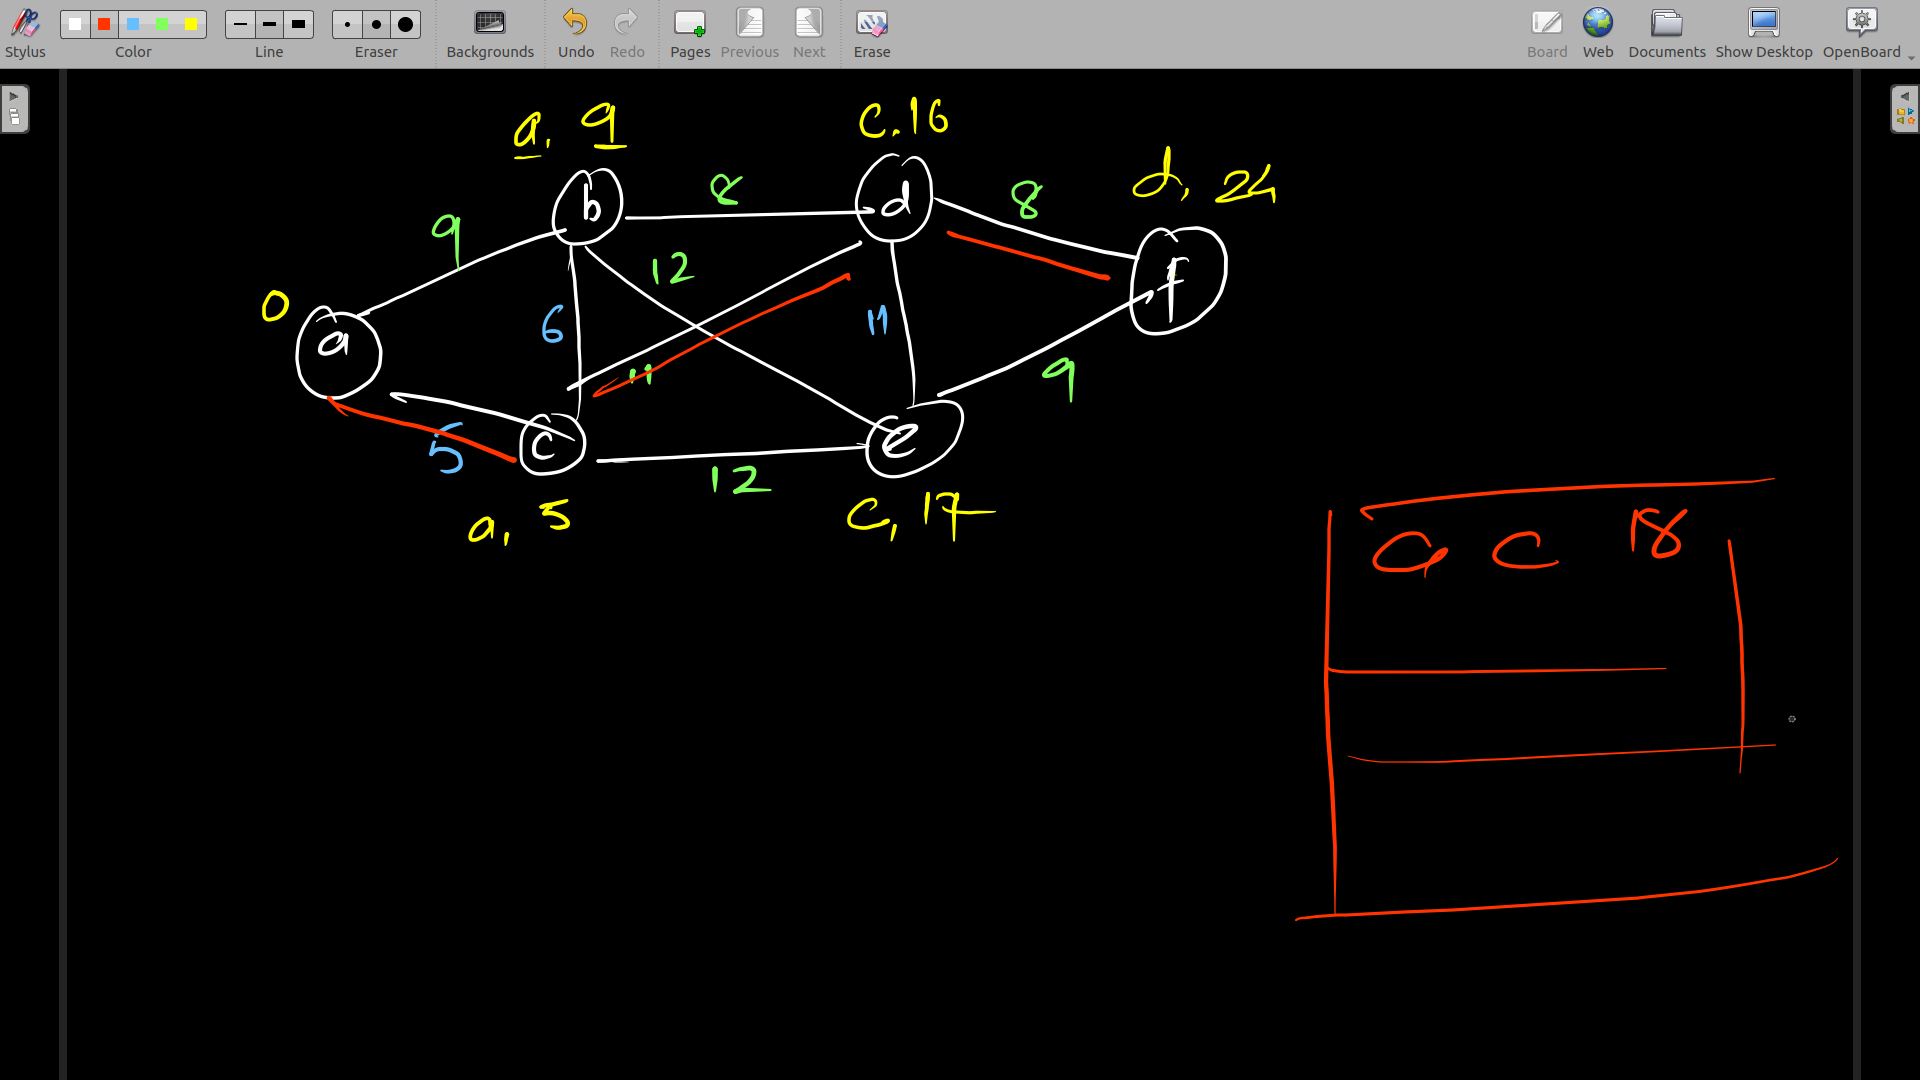 Stylus Color Line Eraser Backgrounds Undo Redo Pages Previous Next Erase Board Web Documents Show Desktop OpenBoard
a, 9
c.16
d, 24
9
8
8
0
b
d
f
a
12
6
11
11
9
5
c
e
12
a, 5
c, 17
a c 18